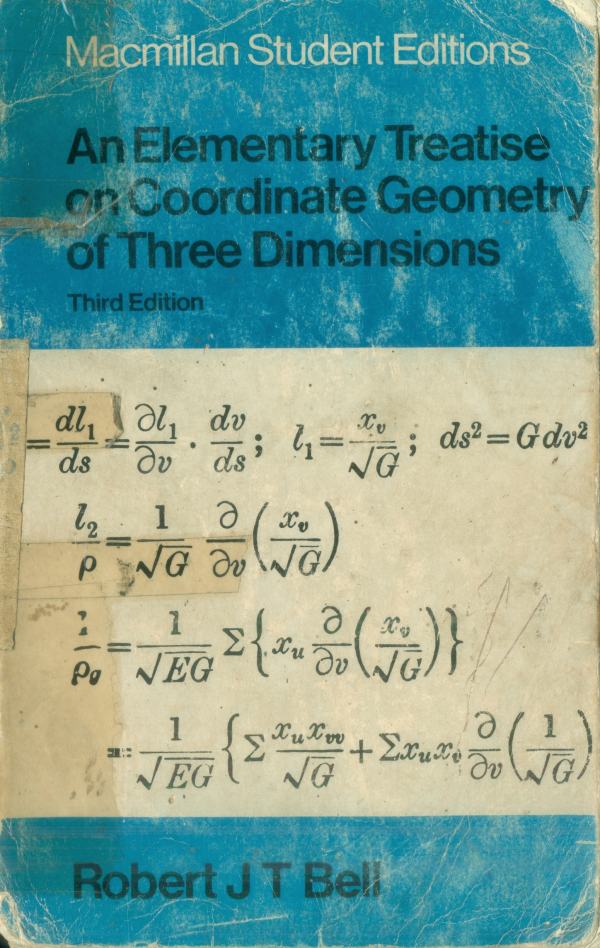 Macmillan Student Editions
An Elementary Treatise
on Coordinate Geometry
of Three Dimensions
Third Edition
= dl₁/ds = ∂l₁/∂v · dv/ds; l₁ = xᵥ/√G; ds² = G dv²
l₂/ρ = 1/√G ∂/∂v (xᵥ/√G)
1/ρg = 1/√EG Σ{xᵤ ∂/∂v (xᵥ/√G)}
= 1/√EG {Σ xᵤxᵥᵥ/√G + Σxᵤxᵥ ∂/∂v (1/√G)
Robert J T Bell